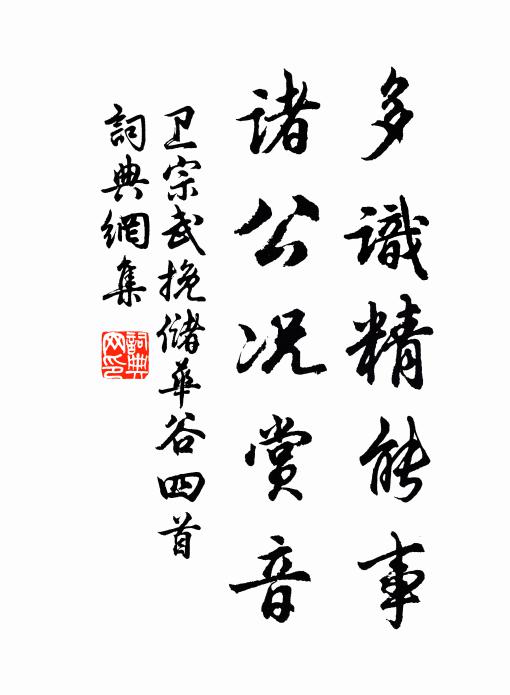 多識精能事
諸公況賞音
卫宗武挽儲華谷四首
詞典網集
詞典網印